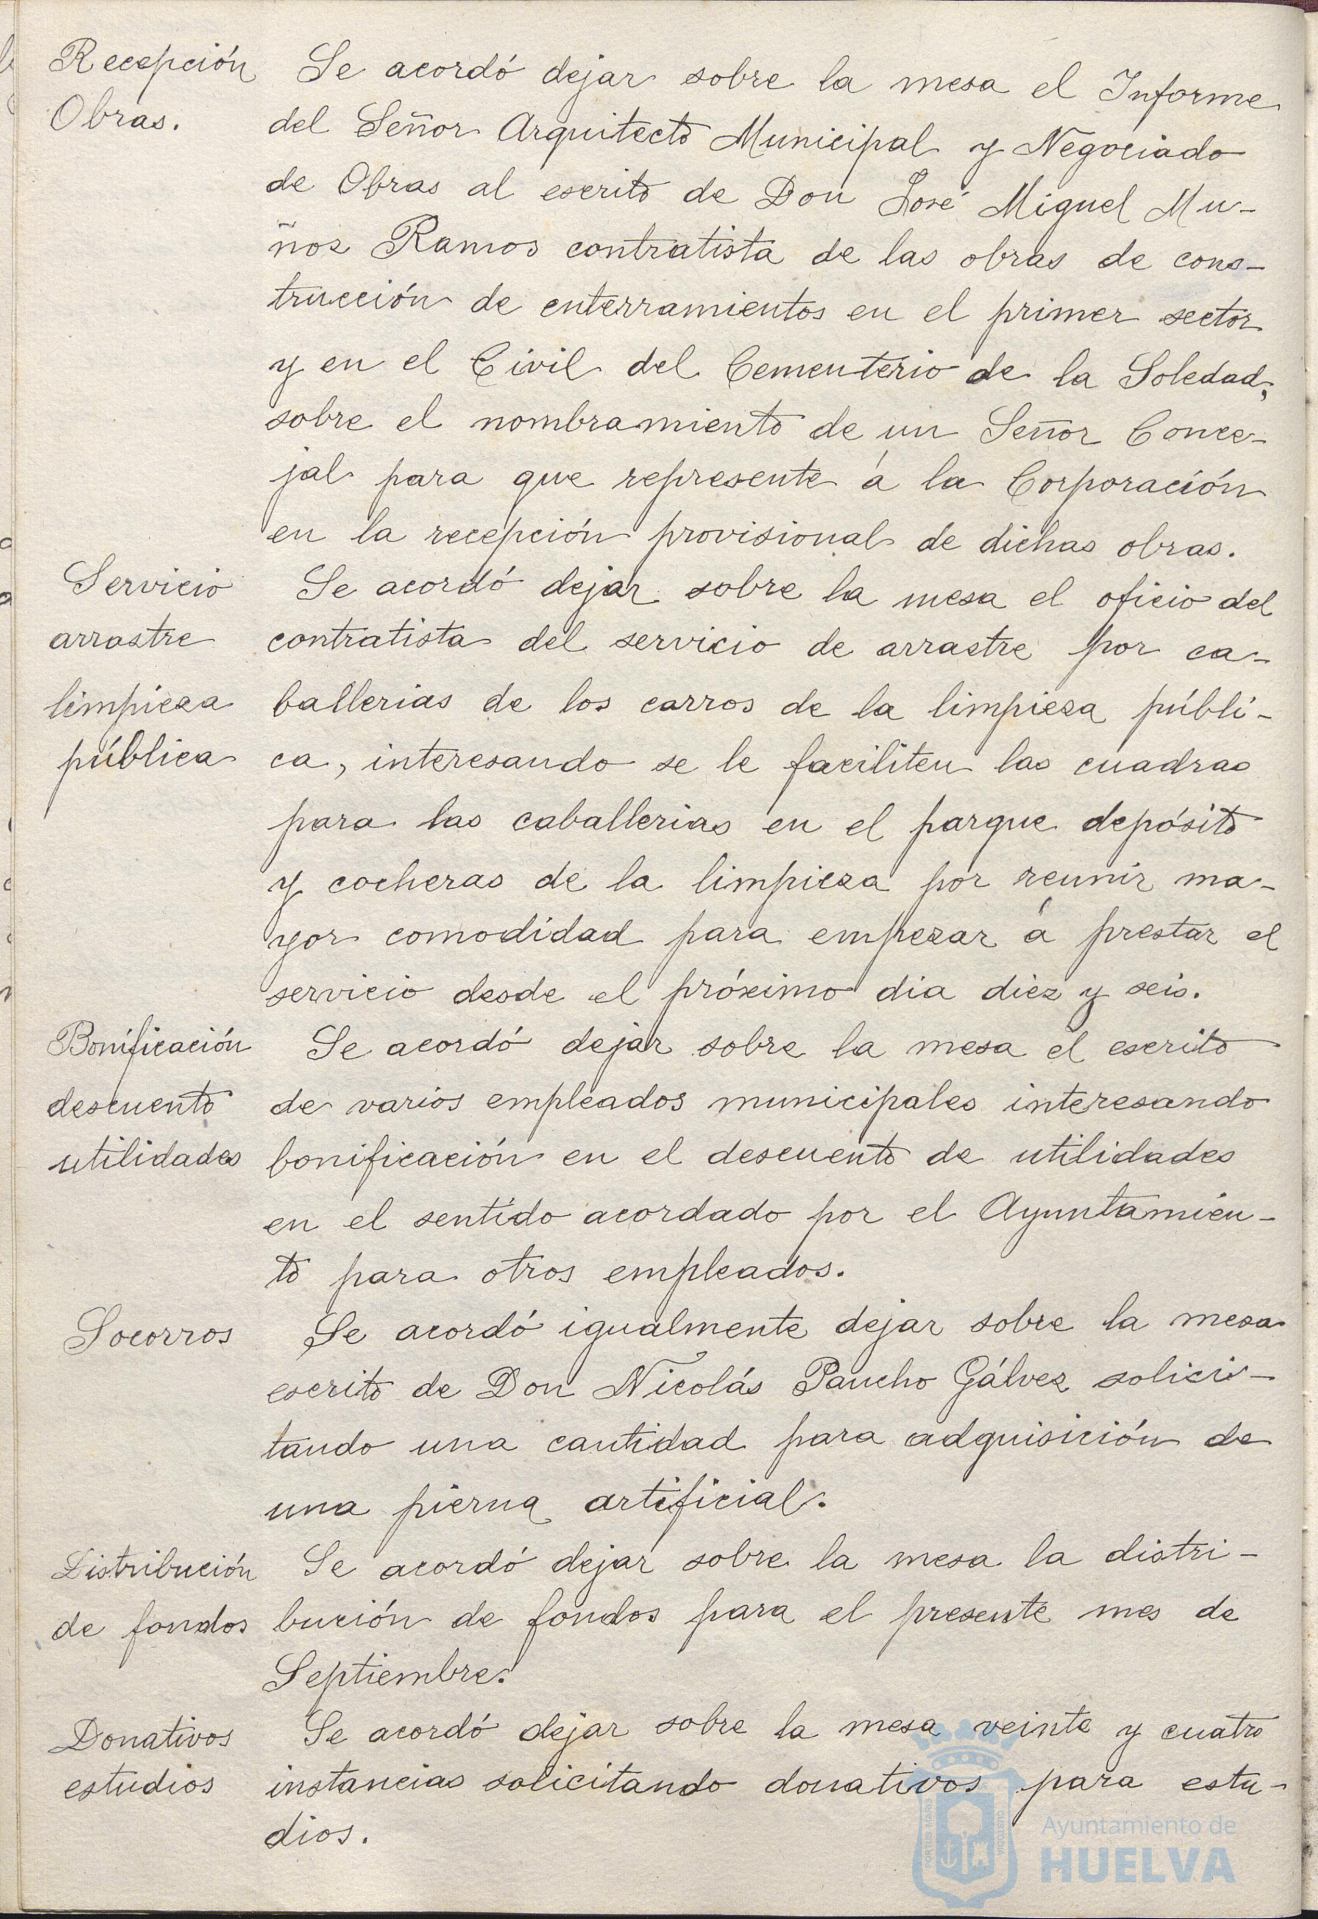 Recepción
Obras.
Se acordó dejar sobre la mesa el Informe
del Señor Arquitecto Municipal y Negociado
de Obras al escrito de Don José Miguel Mu-
ñoz Ramos contratista de las obras de cons-
trucción de enterramientos en el primer sector
y en el Civil del Cementerio de la Soledad,
sobre el nombramiento de un Señor Conce-
jal para que represente á la Corporación
en la recepción provisional de dichas obras.
Servicio
arrastre
limpieza
pública
Se acordó dejar sobre la mesa el oficio del
contratista del servicio de arrastre por ca-
ballerias de los carros de la limpieza públi-
ca, interesando se le faciliten las cuadras
para las caballerias en el parque depósito
y cocheras de la limpieza por reunir ma-
yor comodidad para empezar á prestar el
servicio desde el próximo dia diez y seis.
Bonificación
descuento
utilidades
Se acordó dejar sobre la mesa el escrito
de varios empleados municipales interesando
bonificación en el descuento de utilidades
en el sentido acordado por el Ayuntamien-
to para otros empleados.
Socorros
Se acordó igualmente dejar sobre la mesa
escrito de Don Nicolás Pancho Gálvez solici-
tando una cantidad para adquisición de
una pierna artificial.
Distribución
de fondos
Se acordó dejar sobre la mesa la distri-
bución de fondos para el presente mes de
Septiembre.
Donativos
estudios
Se acordó dejar sobre la mesa veinte y cuatro
instancias solicitando donativos para estu-
dios.
Ayuntamiento de
HUELVA